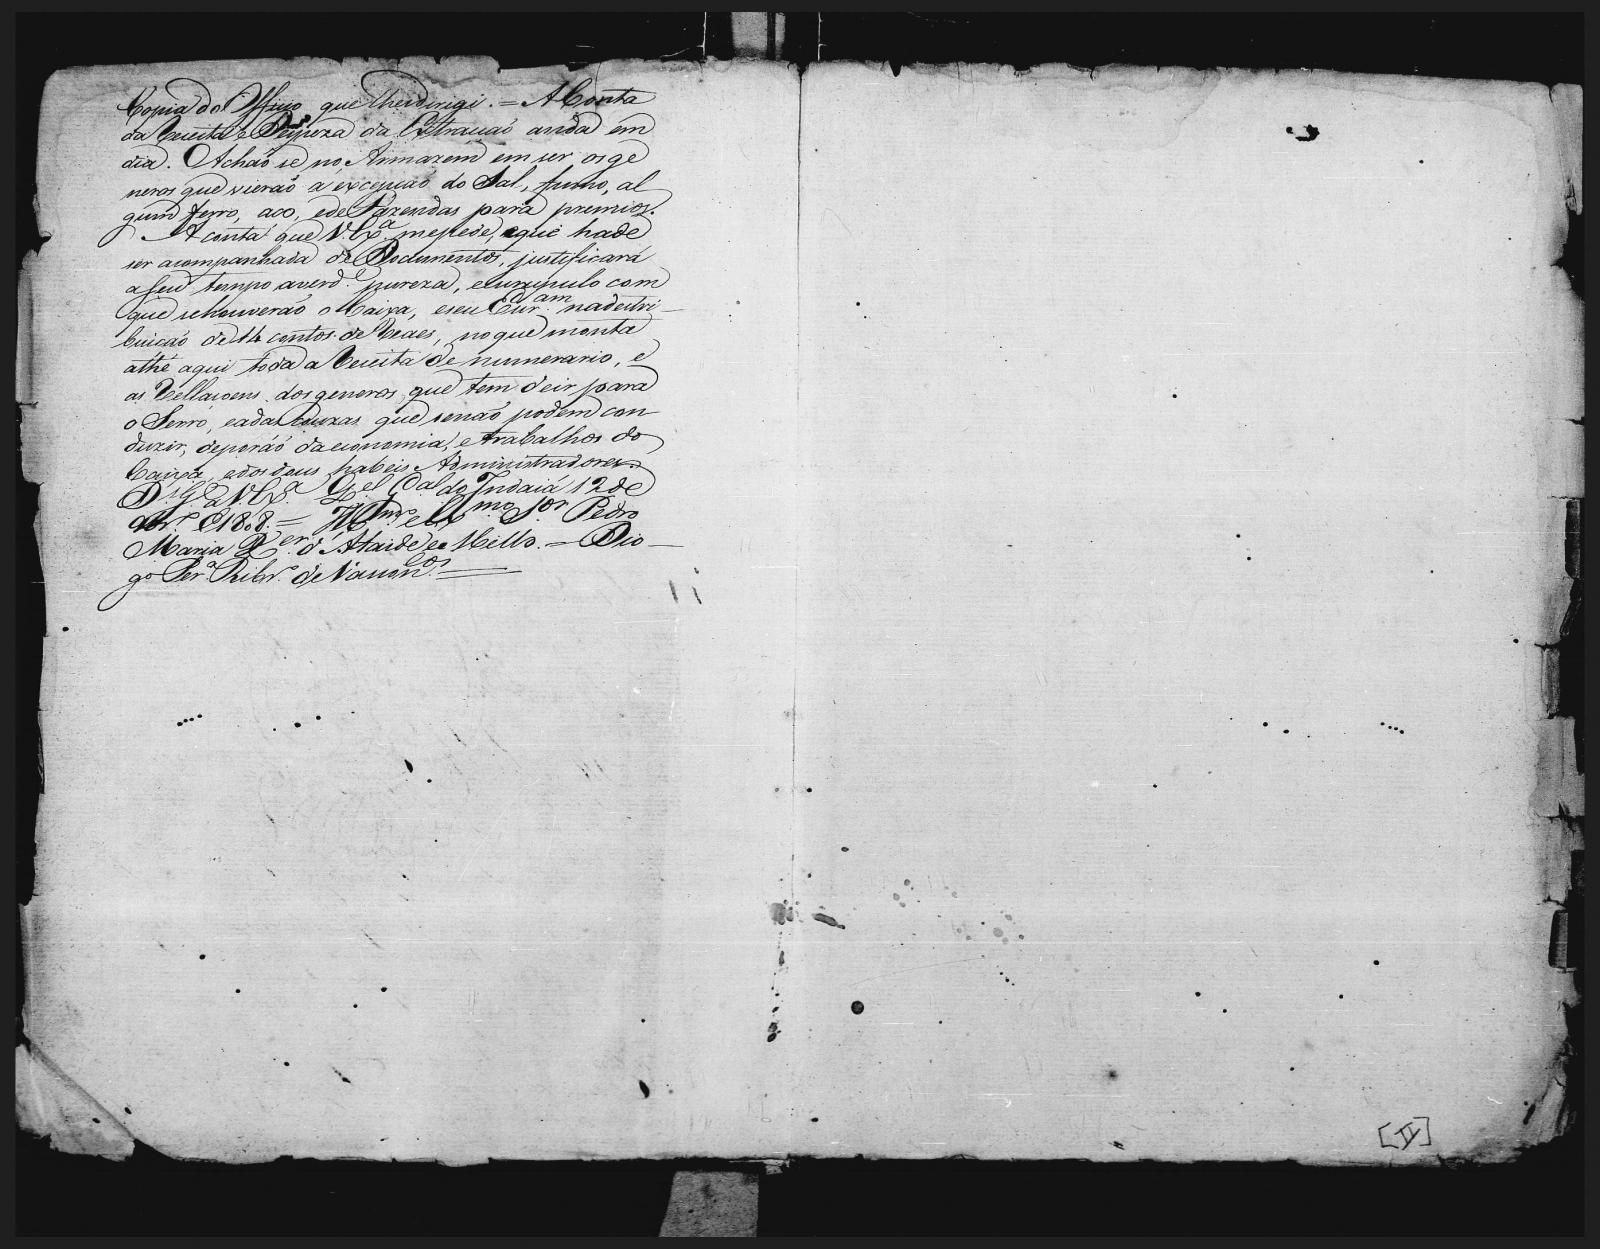 Copia do Officio que lhe dirigi. = A Conta
da Receita e Despeza da Extracaõ anda em
dia. Achaõ se no Armazem em ser os ge
neros que vieraõ a excepcaõ do Sal, fumo, al
gum ferro, aco, ede Fazendas para premios.
A conta que V. Exa. mepede, eque hade
ser acompanhada de Documentos, justificará
aseu tempo averde. pureza, escrupulo com
que sehouveraõ o Caixa, eseu Escram. nadestri-
buicaõ de 14 contos de Reaes, noque monta
athé aqui toda a Receita de numerario, e
as Rellacoens dos generos, que tem deir para
o Serro, eadas Couzas que senaõ podem con
duzir, deporáõ daeconomia, etrabalhos do
Caixa, edosdous habeis Administradores.
Ds. Ge. a V. Exa. Qel. Gal do Indaiá 12 de
de 1808. = Illmo. e Exmo. Sor. Pedro
Maria Xer. d'Ataide e Mello. = Dio-
go Pera. Ribro. de Vasconcos. =
[IV]